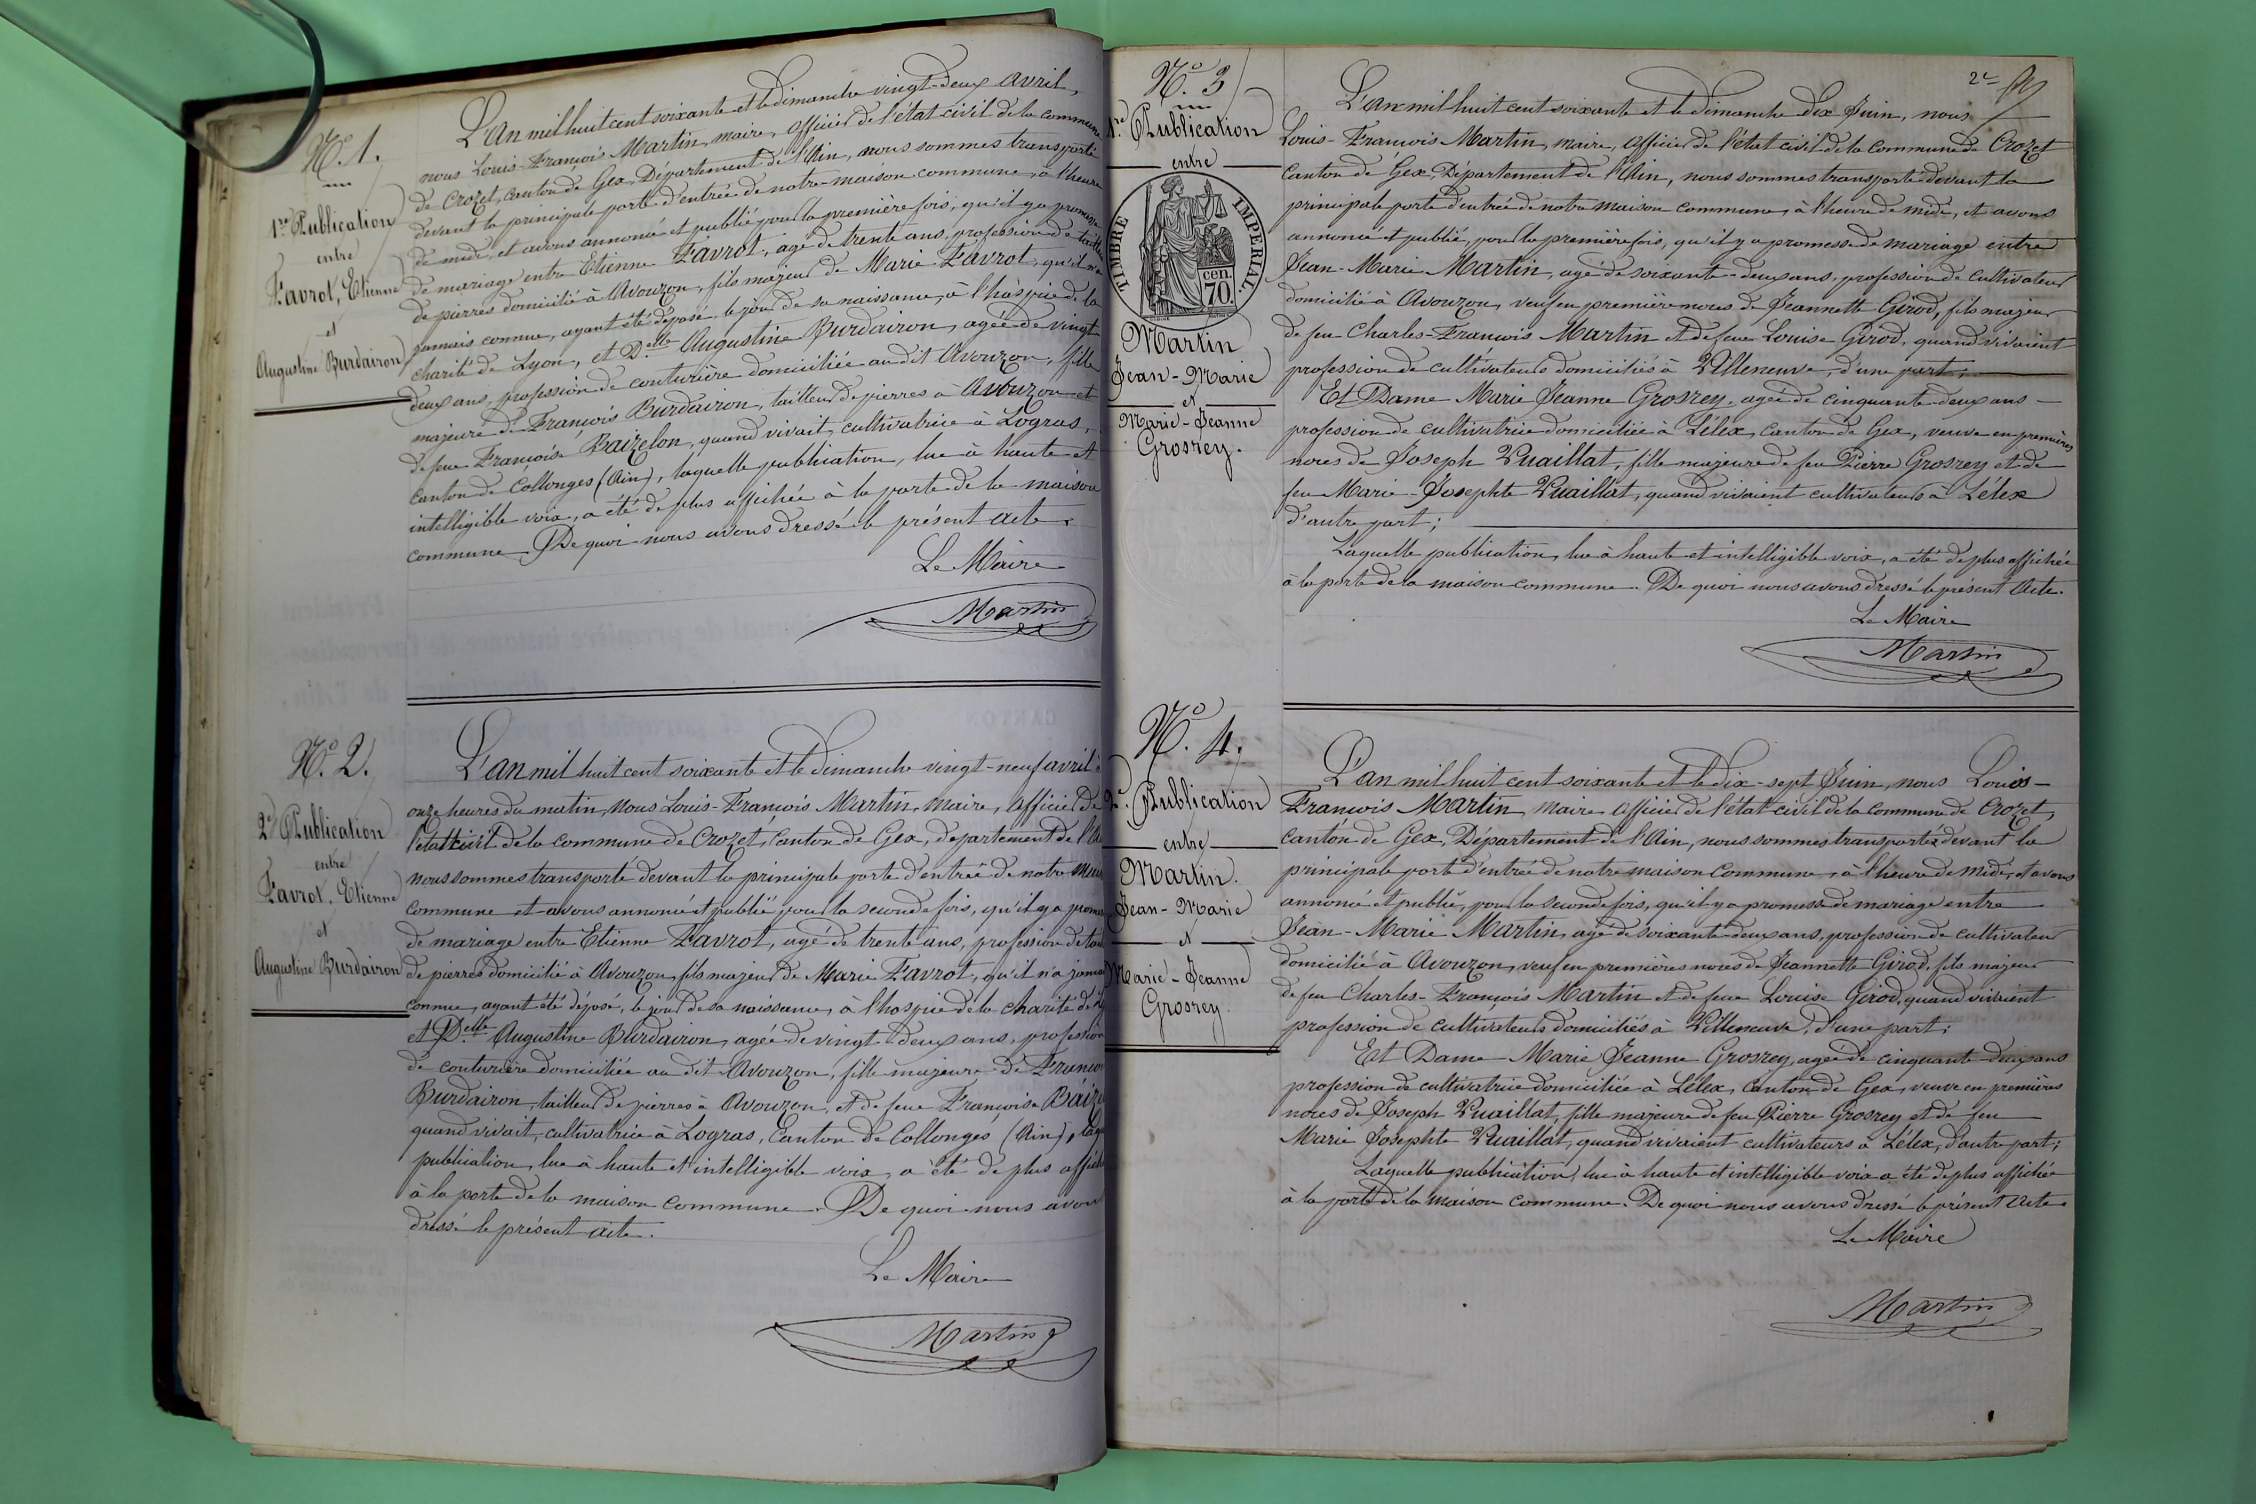 N.º 1.
1.re Publication
entre
Favrot, Etienne
et
Augustine Burdairon
L'An mil huit cent soixante et le dimanche vingt-deux avril,
nous Louis-François Martin, maire, officier de l'état civil de la commune
de Crozet, canton de Gex, Département de l'Ain, nous sommes transporté
devant la principale porte d'entrée de notre maison commune, à l'heure
de midi, et avons annoncé et publié pour la première fois, qu'il y a promesse
de mariage entre Etienne Favrot, agé de trente ans, profession de tailleur
de pierres domicilié à Avouzon, fils majeur de Marie Favrot, qu'il n'a
jamais connue, ayant été déposé, le jour de sa naissance, à l'hospice de la
charité de Lyon, et D.elle Augustine Burdairon, agée de vingt
deux ans, profession de couturière domiciliée au dit Avouzon, fille
majeure de François Burdairon, tailleur de pierres à Avouzon et
de feue Françoise Baizelon, quand vivait, cultivatrice à Logras,
canton de Collonges (Ain), laquelle publication, lue à haute et
intelligible voix, a été de plus affichée à la porte de la maison
commune. De quoi nous avons dressé le présent acte.
Le Maire
Martin
N.º 2.
2.e Publication
entre
Favrot, Etienne
et
Augustine Burdairon
L'an mil huit cent soixante et le dimanche vingt-neuf avril à
onze heures du matin, Nous Louis-François Martin, maire, officier de
l'état civil de la commune de Crozet, canton de Gex, département de l'Ai
nous sommes transporté devant la principale porte d'entrée de notre mais
commune et avons annoncé et publié pour la seconde fois, qu'il y a prome
de mariage entre Etienne Favrot, agé de trente ans, profession de tai
de pierres domicilié à Avouzon, fils majeur de Marie Favrot, qu'il n'a jamai
connue, ayant été déposé, le jour de sa naissance, à l'hospice de la charité de
et D.elle Augustine Burdairon, agée de vingt deux ans, profession
de couturière domiciliée au dit Avouzon, fille majeure de Françoi
Burdairon, tailleur de pierres à Avouzon, et de feue Françoise Baize
quand vivait, cultivatrice à Logras, Canton de Collonges (Ain), laqu
publication, lue à haute et intelligible voix, a été de plus affiché
à la porte de la maison commune. De quoi nous avon
dressé le présent acte.
Le Maire
Martin
2e
N.º 3
1.re Publication
entre
TIMBRE IMPERIAL.
70. cen.
Martin
Jean-Marie
et
Marie-Jeanne
Grosrey.
L'an mil huit cent soixante et le dimanche dix Juin, nous
Louis-François Martin, maire, officier de l'état civil de la Commune de Crozet
canton de Gex, Département de l'Ain, nous sommes transporté devant la
principale porte d'entrée de notre maison commune, à l'heure de midi, et avons
annoncé et publié, pour la première fois, qu'il y a promesse de mariage entre
Jean-Marie Martin, agé de soixante-deux ans, profession de cultivateur
domicilié à Avouzon, veuf en première noces de Jeannette Girod, fils majeur
de feu Charles-François Martin et de feue Louise Girod, quand vivaient
profession de cultivateurs domiciliés à Villeneuve, d'une part;
Et Dame Marie Jeanne Grosrey, agée de cinquante-deux ans
profession de cultivatrice domiciliée à Lélex, canton de Gex, veuve en premières
noces de Joseph Vuaillat, fille majeure de feu Pierre Grosrey et de
feu Marie-Josephte Vuaillat, quand vivaient cultivateurs à Lélex
d'autre part;
Laquelle publication, lue à haute et intelligible voix, a été de plus affichée
à la porte de la maison commune. De quoi nous avons dressé le présent Acte.
Le Maire
Martin
N.º 4.
2.e Publication
entre
Martin
Jean-Marie
et
Marie-Jeanne
Grosrey.
L'an mil huit cent soixante et le dix-sept Juin, nous Louis-
François Martin, maire officier de l'état civil de la Commune de Crozet,
canton de Gex, Département de l'Ain, nous sommes transporté devant la
principale porte d'entrée de notre maison Commune, à l'heure de midi, et avons
annoncé et publié, pour la seconde fois, qu'il y a promesse de mariage entre
Jean-Marie Martin, agé de soixante-deux ans, profession de cultivateur
domicilié à Avouzon, veuf en premières noces de Jeannette Girod, fils majeur
de feu Charles-François Martin et de feue Louise Girod, quand vivaient
profession de cultivateurs domiciliés à Villeneuve, d'une part;
Et Dame Marie Jeanne Grosrey, agée de cinquante-deux ans
profession de cultivatrice domiciliée à Lélex, canton de Gex, veuve en premières
noces de Joseph Vuaillat, fille majeure de feu Pierre Grosrey et de feu
Marie Josephte Vuaillat, quand vivaient cultivateurs à Lélex, d'autre part;
Laquelle publication, lue à haute et intelligible voix a été de plus affichée
à la porte de la maison commune. De quoi nous avons dressé le présent acte.
Le Maire
Martin